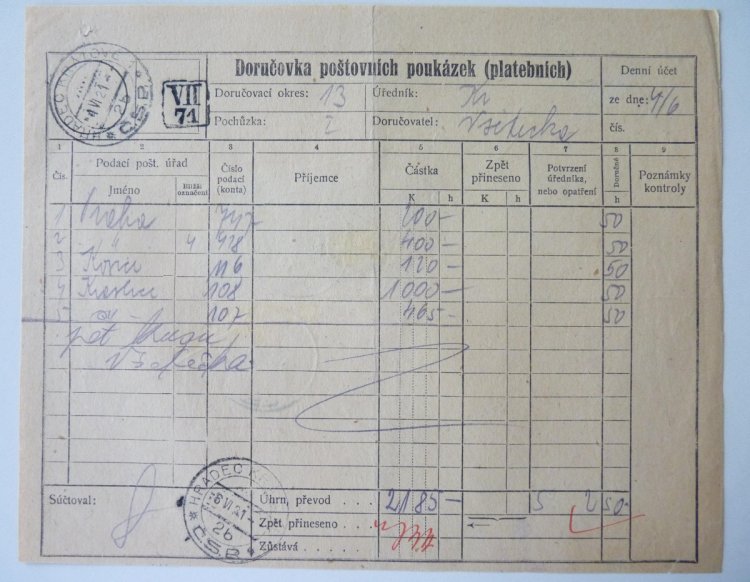 Doručovka poštovních poukázek (platebních)
Denní účet
VII
71
Doručovací okres: 13 Úředník: Kr
ze dne: 4/6
Pochůzka: I Doručovatel: Všetečka
čís.
1 2 3 4 5 6 7 8 9
Čís. Podací pošt. úřad Číslo podací (konta) Příjemce Částka Zpět přineseno Potvrzení úředníka, nebo opatření Doručné Poznámky kontroly
Jméno Bližší označení K h K h h
1 Praha 747 200- 50
2 " 4 428 400- 50
3 Košice 116 120- 50
4 108 1000- 50
5 107 465- 50
pět
Všetečka
HRADEC K
6 VI 21
2b
Č.S.P.
Súčtoval:
Úhrn, převod . . . 2185- 5 250-
Zpět přineseno . . .
Zůstává . . .